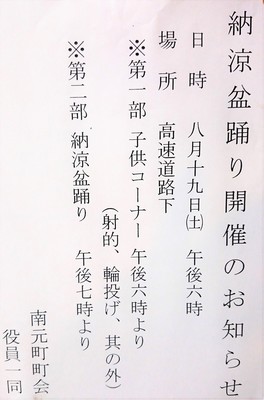 納涼盆踊り開催のお知らせ
日時 八月十九日(土) 午後六時
場所 高速道路下
※第一部 子供コーナー 午後六時より
(射的、輪投げ、其の外)
※第二部 納涼盆踊り 午後七時より
南元町町会
役員一同